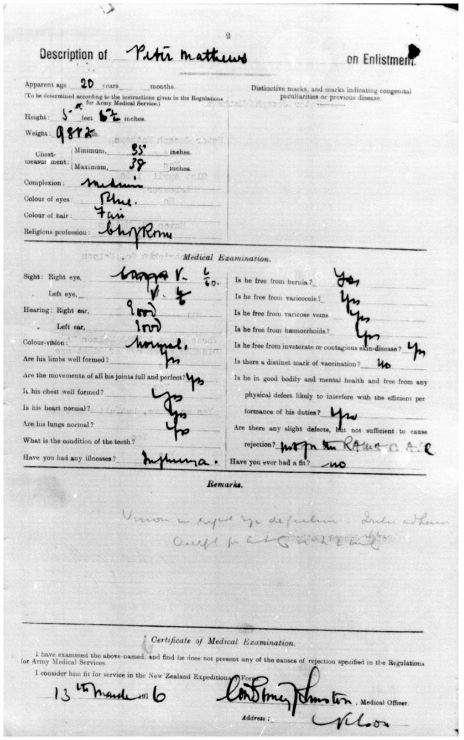 2
Description of Peter Mathews on Enlistment.
Apparent age 20 years months.
(To be determined according to the instructions given in the Regulations
for Army Medical Service.)
Distinctive marks, and marks indicating congenital
peculiarities or previous disease.
Height: 5 feet 6½ inches.
Weight: lb.
Chest-measurement: Minimum, 35 inches.
Maximum, 38 inches.
Complexion: Medium
Colour of eyes: Blue.
Colour of hair: Fair
Religious profession: Ch of Rome
Medical Examination.
Sight: Right eye, V. 6/60.
" Left eye, V. 6/6
Hearing: Right ear, Good
" Left ear, Good
Colour-vision: Normal.
Are his limbs well formed? Yes
Are the movements of all his joints full and perfect? Yes
Is his chest well formed? Yes
Is his heart normal? Yes
Are his lungs normal? Yes
What is the condition of the teeth?
Have you had any illnesses? Influenza.
Is he free from hernia? Yes
Is he free from varicocele? Yes
Is he free from varicose veins Yes
Is he free from hæmorrhoids? Yes
Is he free from inveterate or contagious skin-disease? Yes
Is there a distinct mark of vaccination? No
Is he in good bodily and mental health and free from any
physical defect likely to interfere with the efficient per-
formance of his duties? Yes
Are there any slight defects, but not sufficient to cause
rejection?
Have you ever had a fit? No
Remarks.
Vision in right eye defective.
Certificate of Medical Examination.
I have examined the above-named, and find he does not present any of the causes of rejection specified in the Regulations
for Army Medical Services.
I consider him fit for service in the New Zealand Expeditionary Force.
13th March 1916 , Medical Officer.
Address: Nelson